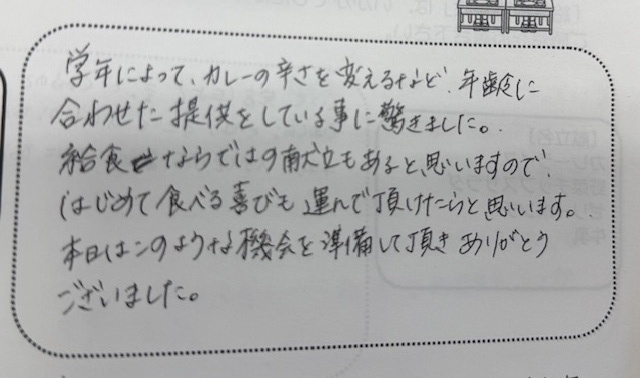 学年によって、カレーの辛さを変えるなど、年齢に
合わせた提供をしている事に驚きました。
給食ならではの献立もあると思いますので、
はじめて食べる喜びも運んで頂けたらと思います。
本日はこのような機会を準備して頂きありがとう
ございました。